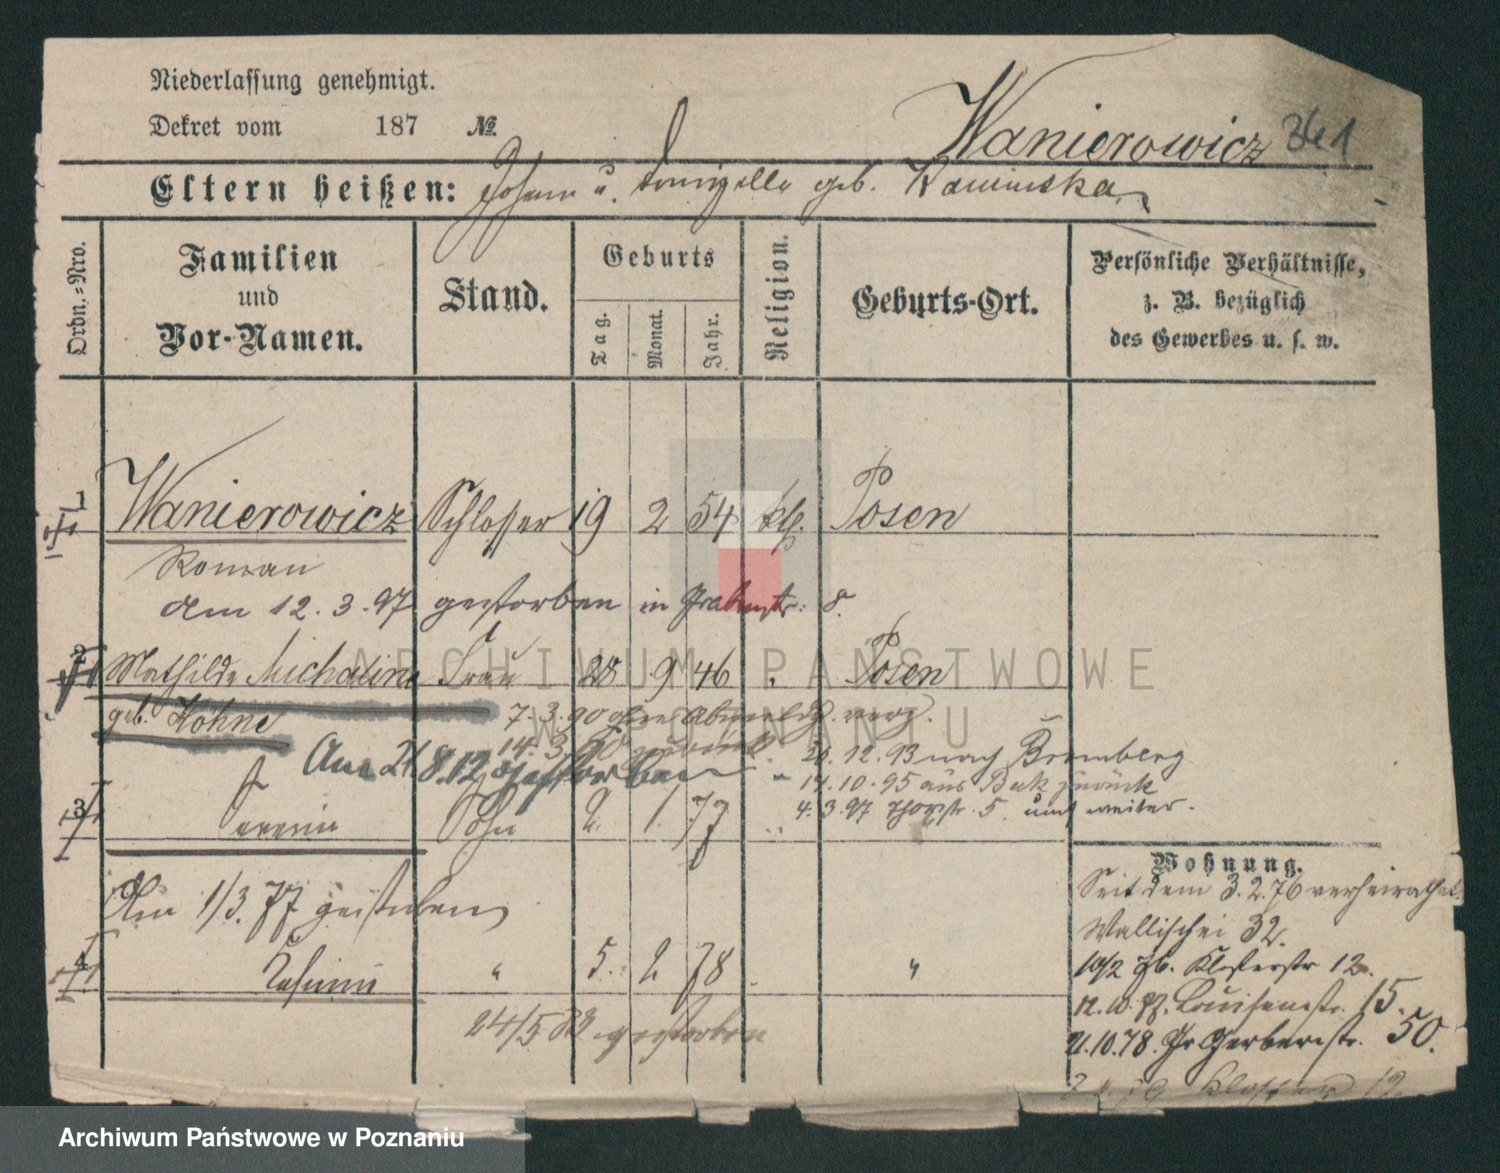 Niederlassung genehmigt.
Dekret vom 187 №
Wanierowicz 341
Eltern heißen: Johann u. geb. Kaminska
Ordn.-Nro.
Familien
und
Vor-Namen.
Stand.
Geburts
Tag.
Monat.
Jahr.
Religion.
Geburts-Ort.
Persönliche Verhältnisse,
z. B. bezüglich
des Gewerbes u. s. w.
1 Wanierowicz Schlosser 19 2 54 kth. Posen
Roman
am 12.3.97 gestorben in Grabenstr. 8.
2 Mathilde Michalina Frau 28 9 46 " Posen
geb. Höhne 7.3.90 ohne Abmeldg. verz.
14.3.90 zurück. 20.12.93 nach Bromberg
Am 21.8.12 gestorben 14.10.95 aus Buk zurück
4.3.97 Thorstr. 5 und weiter.
3 Sohn 2. 1. 77 "
Am 1/3.77 gestorben
4 Casimir " 5. 2 78 "
24/5 gestorben
Wohnung.
Seit dem 3.2.76 verheirathet
Wallischei 32.
10/2 76. Klosterstr 12.
Louisenstr. 15.
21.10.78. Gr Gerberstr. 50.
79 12.
ARCHIWUM PAŃSTWOWE
W POZNANIU
Archiwum Państwowe w Poznaniu